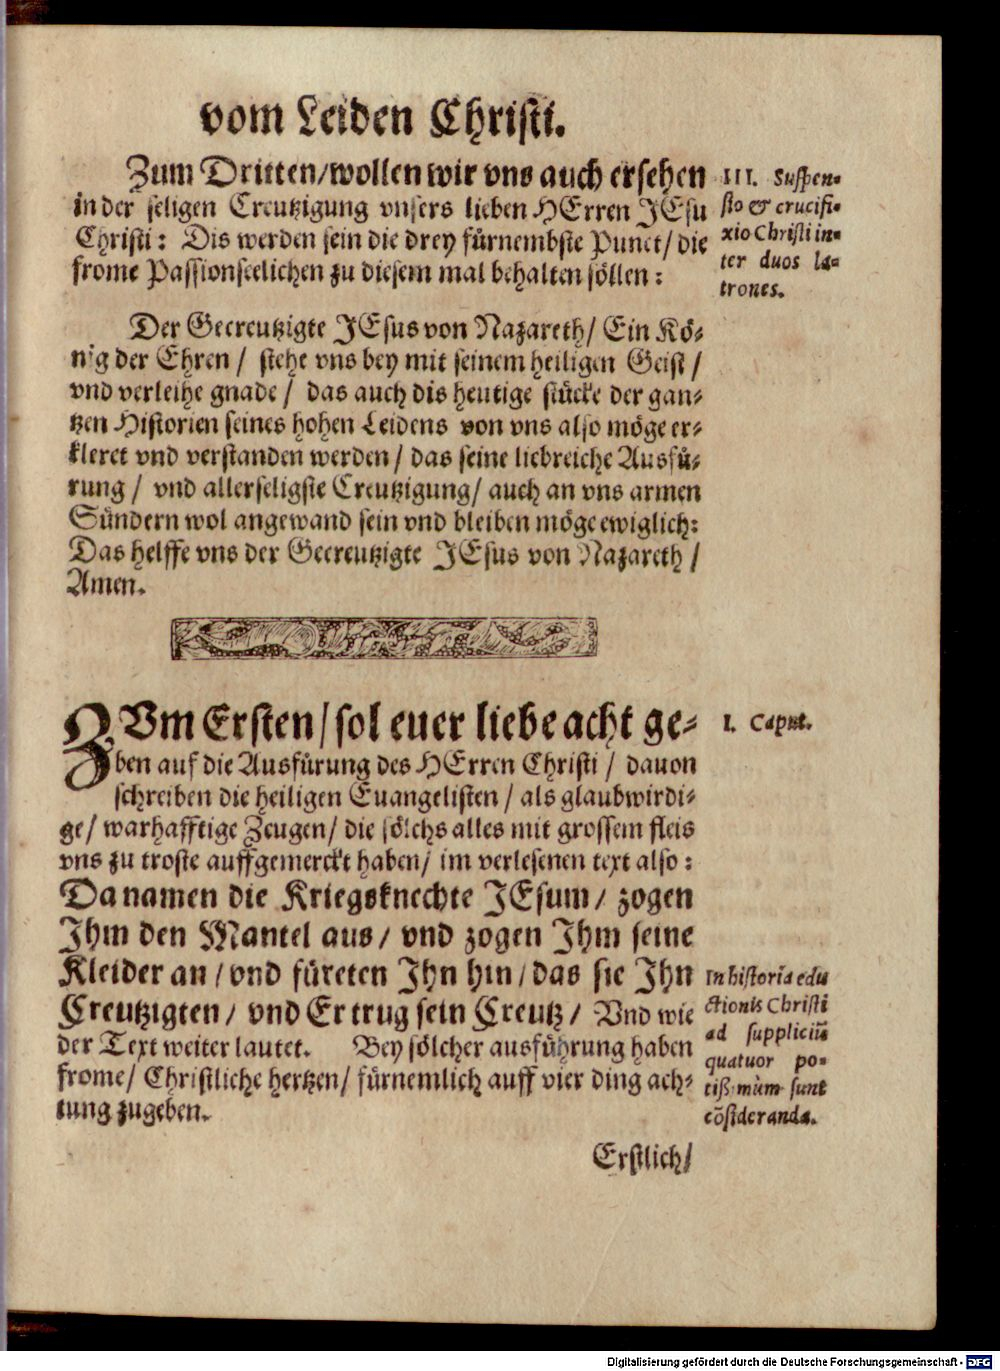 vom Leiden Christi.
Zum Dritten/wollen wir vns auch ersehen
in der seligen Creutzigung vnsers lieben HErren JEsu
Christi: Dis werden sein die drey fürnembste Punct/ die
frome Passionseelichen zu diesem mal behalten söllen:
III. Suspen-
sio & crucifi-
xio Christi in-
ter duos la-
trones.
Der Gecreutzigte JEsus von Nazareth/ Ein Kö-
nig der Ehren/ stehe vns bey mit seinem heiligen Geist/
vnd verleihe gnade/ das auch dis heutige stücke der gan-
tzen Historien seines hohen Leidens von vns also möge er-
kleret vnd verstanden werden/ das seine liebreiche Ausfü-
rung/ vnd allerseligste Creutzigung/ auch an vns armen
Sündern wol angewand sein vnd bleiben möge ewiglich:
Das helffe vns der Gecreutzigte JEsus von Nazareth/
Amen.
ZUm Ersten/sol euer liebe acht ge-
ben auf die Ausfürung des HErren Christi/ dauon
schreiben die heiligen Euangelisten/ als glaubwirdi-
ge/ warhafftige Zeugen/ die sölchs alles mit grossem fleis
vns zu troste auffgemerckt haben/ im verlesenen text also:
Da namen die Kriegsknechte JEsum/ zogen
Ihm den Mantel aus/ vnd zogen Ihm seine
Kleider an/ vnd füreten Ihn hin/ das sie Ihn
Creutzigten/ vnd Er trug sein Creutz/ Vnd wie
der Text weiter lautet. Bey sölcher ausführung haben
frome/ Christliche hertzen/ fürnemlich auff vier ding ach-
tung zugeben.
I. Caput.
In historia edu
ctionis Christi
ad suppliciũ
quatuor po-
tißimùm sunt
cõsideranda.
Erstlich/
Digitalisierung gefördert durch die Deutsche Forschungsgemeinschaft - DFG